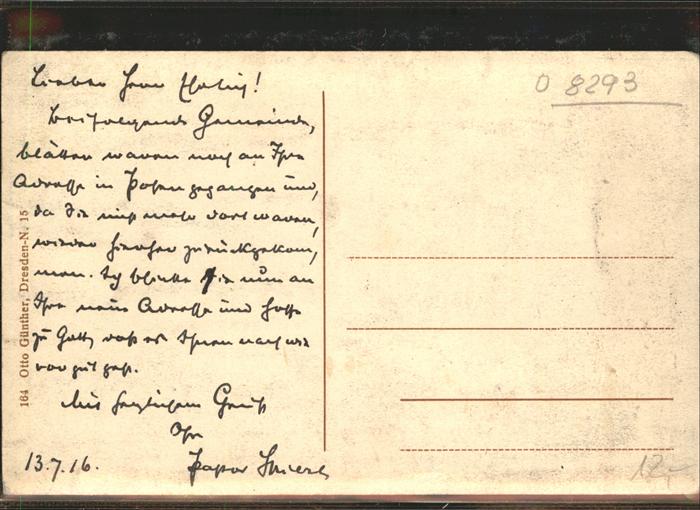 Lieber Herr
Beifolgende Gemeinde,
blätter waren noch an Ihre
Adresse in Posen gegangen und,
da Sie nicht mehr dort waren,
wieder hierher zurückgekom,
men. Ich schicke sie nun an
Ihre neue Adresse und hoffe
zu Gott, daß es Ihnen nach wie
vor gut geht.
Mit herzlichem Gruß
Ihr
13.7.16. Pastor
O 8293
12,-
164 Otto Günther, Dresden-N. 15